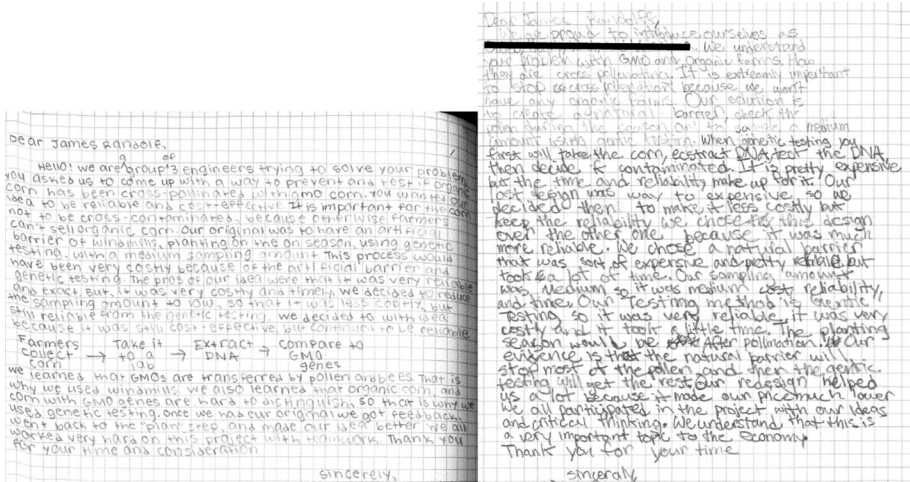 Dear James Randolf,
a of
Hello! we are group 3 engineers trying to solve your problem
you asked us to come up with a way to prevent and test if organic
corn has been cross-pollinated with GMO corn. You wanted our
idea to be reliable and cost-effective It is important for the corn
not to be cross-contaminated, because otherwise farmers
can't sell organic corn. Our original was to have an artificial
barrier of windmills, planting on the on season, using genetic
testing, with a medium sampling amount This process would
have been very costly because of the artificial barrier and
genetic testing. The pros of our idea were that it was very reliable
and exact. But, it was very costly and timely, we decided to reduce
the sampling amount to low, so that it was less costly, but
still reliable from the genetic testing, we decided to with is idea
because it was still cost-effective, but continued to be reliable
Farmers Take it Extract compare to
collect → to a → DNA → GMO
corn lab genes
we learned that GMOs are transferred by pollen and bees. That is
why we used windmills. we also learned that organic corn and
corn with GMO genes are hard to distinguish, so that is why we
used genetic testing. once we had our original we got feedback,
went back to the "plan" step, and made our idea better we all
worked very hard on this project with teamwork. Thank you
for your time and consideration
sincerely,
Dear James Randolff,
We are proud to introduce ourselves as
We understand
your problem with GMO and organic farms. How
they are cross pollenating. It is extreamly important
to stop because we won't
have any organic farms. Our solution is
to create a natural barrier, check the
during the season and to sample a medium
amount using genetic testing. When genetic testing you
first will take the corn, ecstract DNA, test the DNA,
then decide if contaminated. It is pretty expensive
but the time and reliability make up for it. Our
last design was way to expensive, so we
decided then to make it less costly but
keep the reliability. we chose this design
over the other one because it was much
more reliable. We chose a natural barrier
that was sort of expensive and pretty reliable, but
took a lot of time. Our sampling amount
was medium so it was medium reliability,
and time. Our Testing method is Gentic
Testing, so it was very reliable, it was very
costly and it took little time. The planting
season would be After pollination. Our
evidence is that the natural barrier will
stop most of the pollen, and then the gentic
testing will get the rest. Our redesign helped
us a lot because it made our price much lower
We all participated in the project with our ideas
and critical thinking. We understand that this is
a very important topic to the economy.
Thank you for your time
sinceraly,